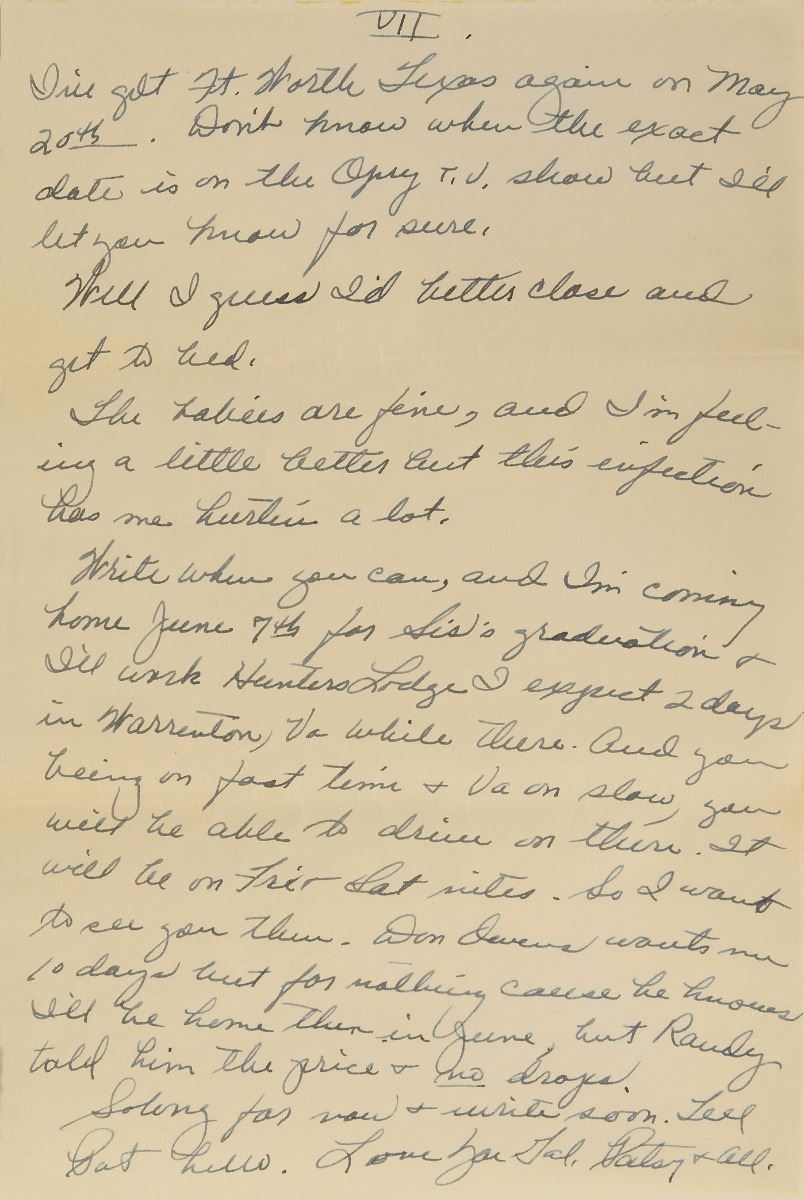 VII.
I've got Ft. Worth Texas again on May
20th. Don't know when the exact
date is on the Opry T.V. show but I'll
let you know for sure.
Well I guess I'd better close and
get to bed.
The babies are fine, and I'm feel-
ing a little better but this infection
has me hurtin a lot.
Write when you can, and I'm coming
home June 7th for Sis's graduation &
I'll work Hunters Lodge I expect 2 days
in Warrenton, Va while there. And you
being on fast time & Va on slow, you
will be able to drive on there. It
will be on Fri & Sat nites. So I want
to see you then. Don Owens wants me
10 days but for nothing cause he knows
I'll be home then in June, but Randy
told him the price & no drops.
Solong for now & write soon. Tell
Pat hello. Love Yar Gal. Patsy & all.